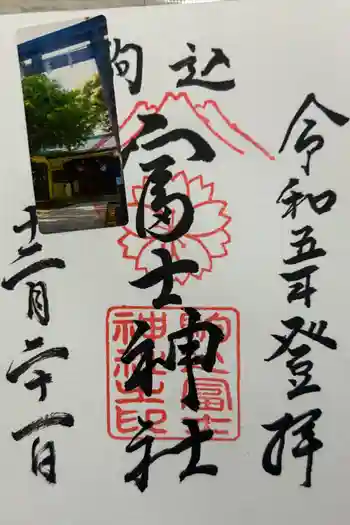 令和五年登拝
駒込
富士神社
駒込富士
神社之印
十二月二十一日